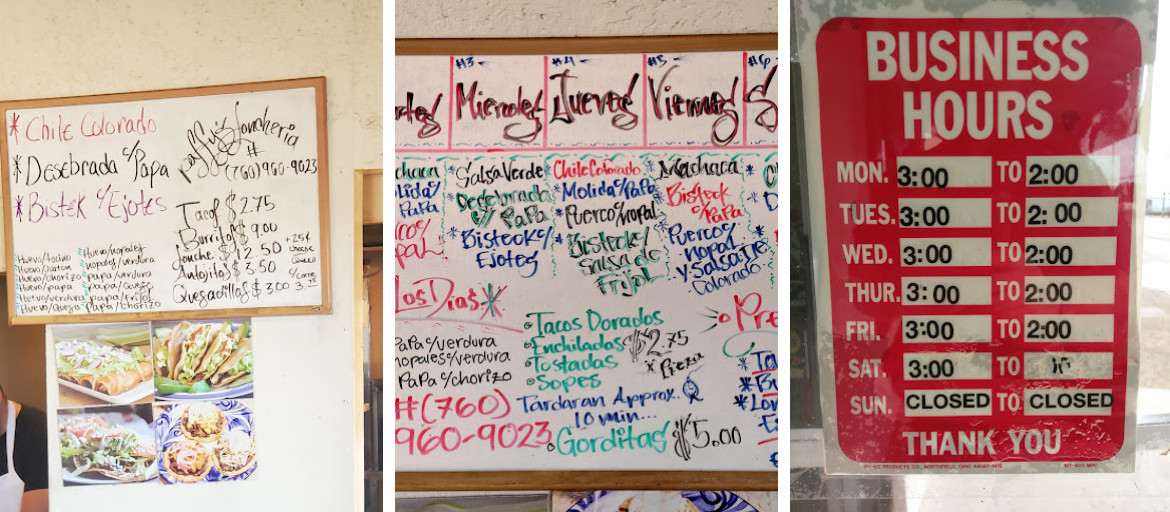 * Chile Colorado
* Desebrada c/Papa
* Bistek c/Ejotes
Loncheria
#
(760) 960-9023
Tacos $ 2.75
Burritos $ 9.00
Lonche $ 12.50
+25¢
cheese
Antojitos $ 3.50
Quesadillas $ 3.00
c/carne
3.75
Huevo/papa
Huevo/verdura
Huevo/Queso
Huevo/nopales
nopales/verdura
papa/verdura
papa/Queso
papa/frijol
Papa/chorizo
#3
Miercoles
#4
Jueves
#5
Viernes
#6
Papa
Salsa Verde
Desebrada
c/ PaPa
Bisteck c/
Ejotes
Chile Colorado
Molida/Papa
Puerco/nopal
Bisteck y
Salsa de
Frijol
Machaca
Bisteck
c/Papa
Puerco c/
nopal
y Salsa
Colorado
Los Dias *
PaPa c/verdura
nopales c/verdura
PaPa c/chorizo
#(760)
960-9023
Tacos Dorados
Enchiladas
Tostadas
Sopes
$2.75
x Pieza
Tardaran Approx..
10 min...
Gorditas $5.00
BUSINESS
HOURS
MON. 3:00 TO 2:00
TUES. 3:00 TO 2:00
WED. 3:00 TO 2:00
THUR. 3:00 TO 2:00
FRI. 3:00 TO 2:00
SAT. 3:00 TO
SUN. CLOSED TO CLOSED
THANK YOU